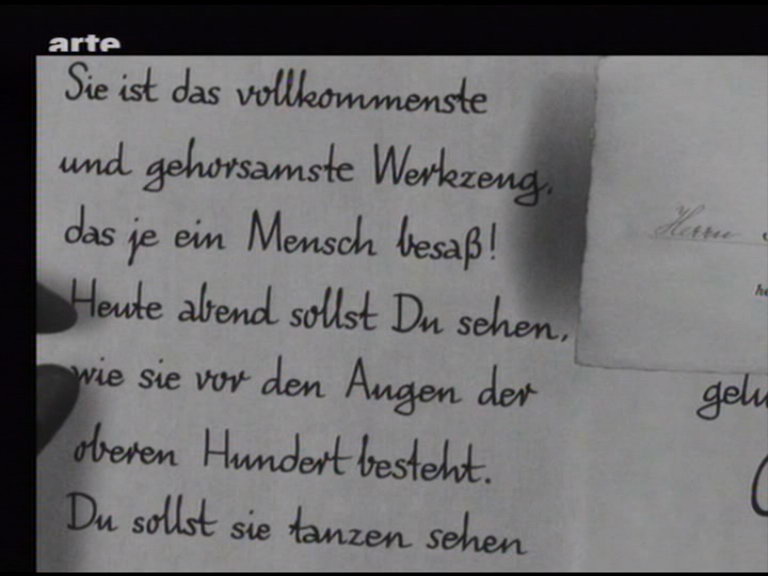 arte
Sie ist das vollkommenste
und gehorsamste Werkzeug,
das je ein Mensch besaß!
Heute abend sollst Du sehen,
wie sie vor den Augen der
oberen Hundert besteht.
Du sollst sie tanzen sehen
Herrn